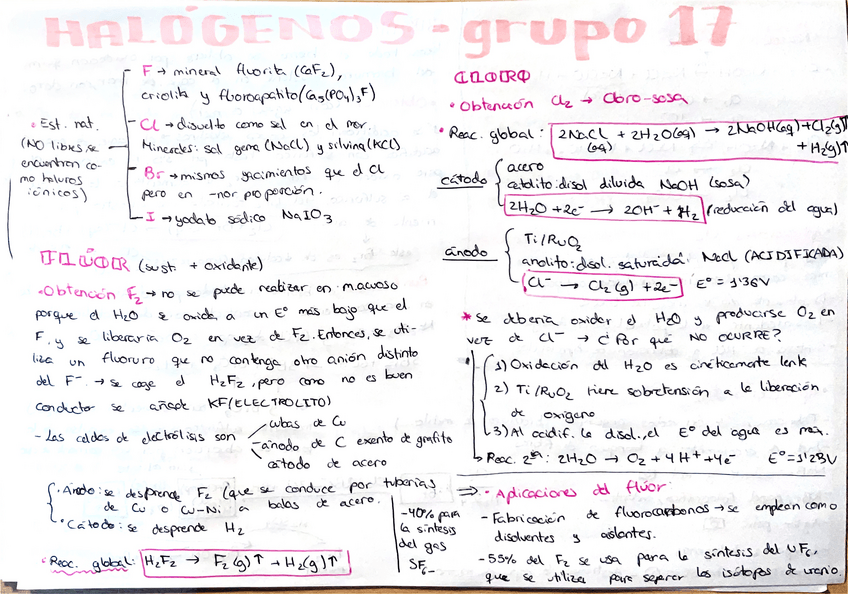 HALÓGENOS - grupo 17
• Est. nat.
(NO libres, se
encuentran co-
mo haluros
iónicos)
F → mineral fluorita (CaF₂),
criolita y fluoroapatito (Ca₅(PO₄)₃F)
Cl → disuelto como sal en el mar.
Minerales: sal gema (NaCl) y silvina (KCl)
Br → mismos yacimientos que el Cl
pero en -nor proporción.
I → yodato sódico NaIO₃
FLÚOR (sust. + oxidante)
• Obtención F₂ → no se puede realizar en m.acuoso
porque el H₂O se oxida a un E° más bajo que el
F, y se liberaría O₂ en vez de F₂. Entonces, se uti-
liza un fluoruro que no contenga otro anión distinto
del F⁻. → se coge el H₂F₂, pero como no es buen
conductor se añade KF (ELECTROLITO)
- Las celdas de electrólisis son
cubas de Cu
ánodo de C exento de grafito
cátodo de acero
• Ánodo: se desprende F₂ (que se conduce por tuberías
de Cu o Cu-Ni a balas de acero.
• Cátodo: se desprende H₂
• Reac. global: H₂F₂ → F₂(g)↑ + H₂(g)↑
-40% para
la síntesis
del gas
SF₆-
CLORO
• Obtención Cl₂ → Cloro-sosa
• Reac. global: 2NaCl + 2H₂O(aq) → 2NaOH(aq) + Cl₂(g)↑
(aq) + H₂(g)↑
cátodo
acero
catolito: disol diluida NaOH (sosa)
2H₂O + 2e⁻ → 2OH⁻ + H₂ (reducción del agua)
ánodo
Ti/RuO₂
anolito: disol. saturada: NaCl (ACIDIFICADA)
Cl⁻ → Cl₂(g) + 2e⁻ E° = 1'36V
* Se debería oxidar el H₂O y producirse O₂ en
vez de Cl⁻ → ¿Por qué NO OCURRE?
1) Oxidación del H₂O es cinéticamente lenta
2) Ti/RuO₂ tiene sobretensión a la liberación
de oxígeno
3) Al acidif. la disol., el E° del agua es may.
↳ Reac. 2ª: 2H₂O → O₂ + 4H⁺ + 4e⁻ E° = 1'23V
⇒ • Aplicaciones del flúor
- Fabricación de fluorocarbonos → se emplean como
disolventes y aislantes.
-55% del F₂ se usa para la síntesis del UF₆,
que se utiliza para separar los isótopos de uranio.